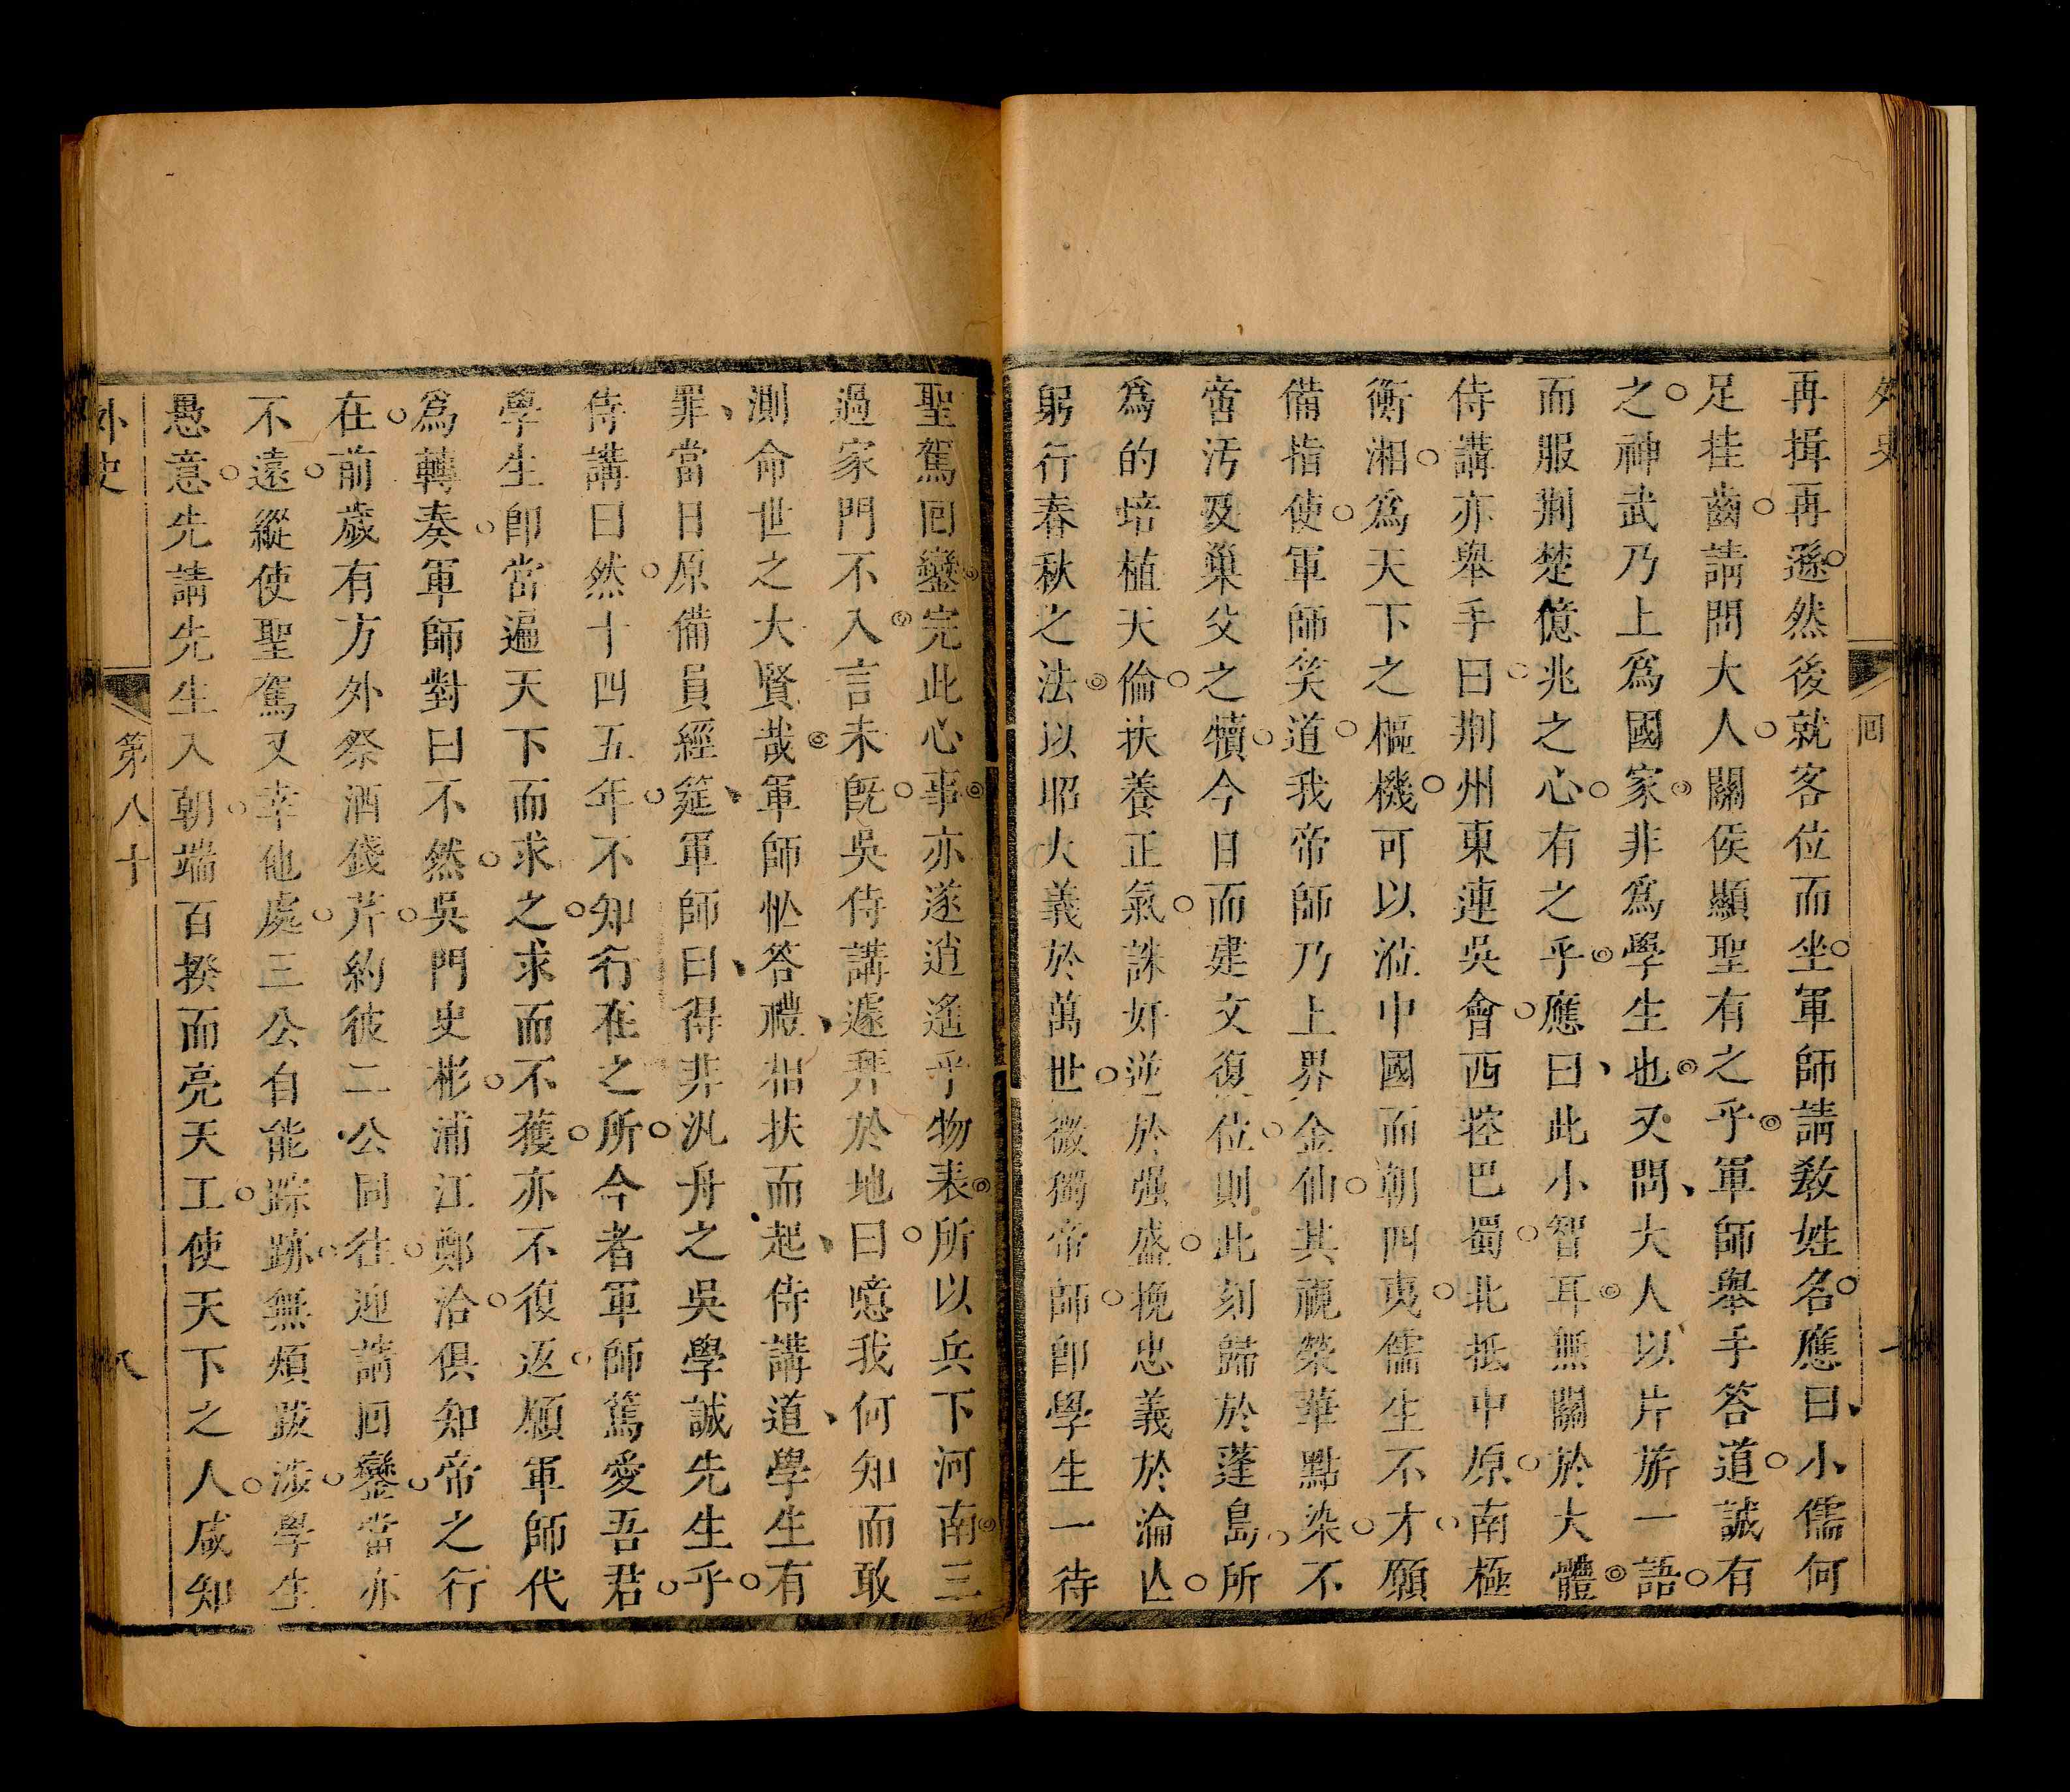 外史
回
再揖再遜然後就客位而坐軍師請教姓名應曰小儒何
足挂齒請問大人關侯顯聖有之乎軍師舉手答道誠有
之神武乃上爲國家非爲學生也又問大人以片旂一語
而服荆楚億兆之心有之乎應曰此小智耳無關於大體
侍講亦舉手曰荆州東連吳會西控巴蜀北抵中原南極
衡湘爲天下之樞機可以涖中國而朝四夷儒生不才願
備指使軍師笑道我帝師乃上界金仙其視榮華點染不
啻汚及巢父之犢今日而建文復位則此刻歸於蓬島所
爲的培植天倫扶養正氣誅奸逆於强盛挽忠義於淪亾
躬行春秋之法以昭大義於萬世微獨帝師卽學生一待
聖駕回鑾完此心事亦遂逍遙乎物表所以兵下河南三
過家門不入言未既吳侍講遽拜於地曰噫我何知而敢
測命世之大賢哉軍師忙答禮相扶而起侍講道學生有
罪當日原備員經筵軍師曰得非汎舟之吳學誠先生乎
侍講曰然十四五年不知行在之所今者軍師篤愛吾君
學生卽當遍天下而求之求而不獲亦不復返願軍師代
爲轉奏軍師對曰不然吳門史彬浦江鄭洽俱知帝之行
在前歲有方外祭酒錢芹約彼二公同往迎請回鑾當亦
不遠縱使聖駕又幸他處三公自能踪跡無煩跋涉學生
愚意先請先生入朝端百揆而亮天工使天下之人咸知
外史
第八十
八